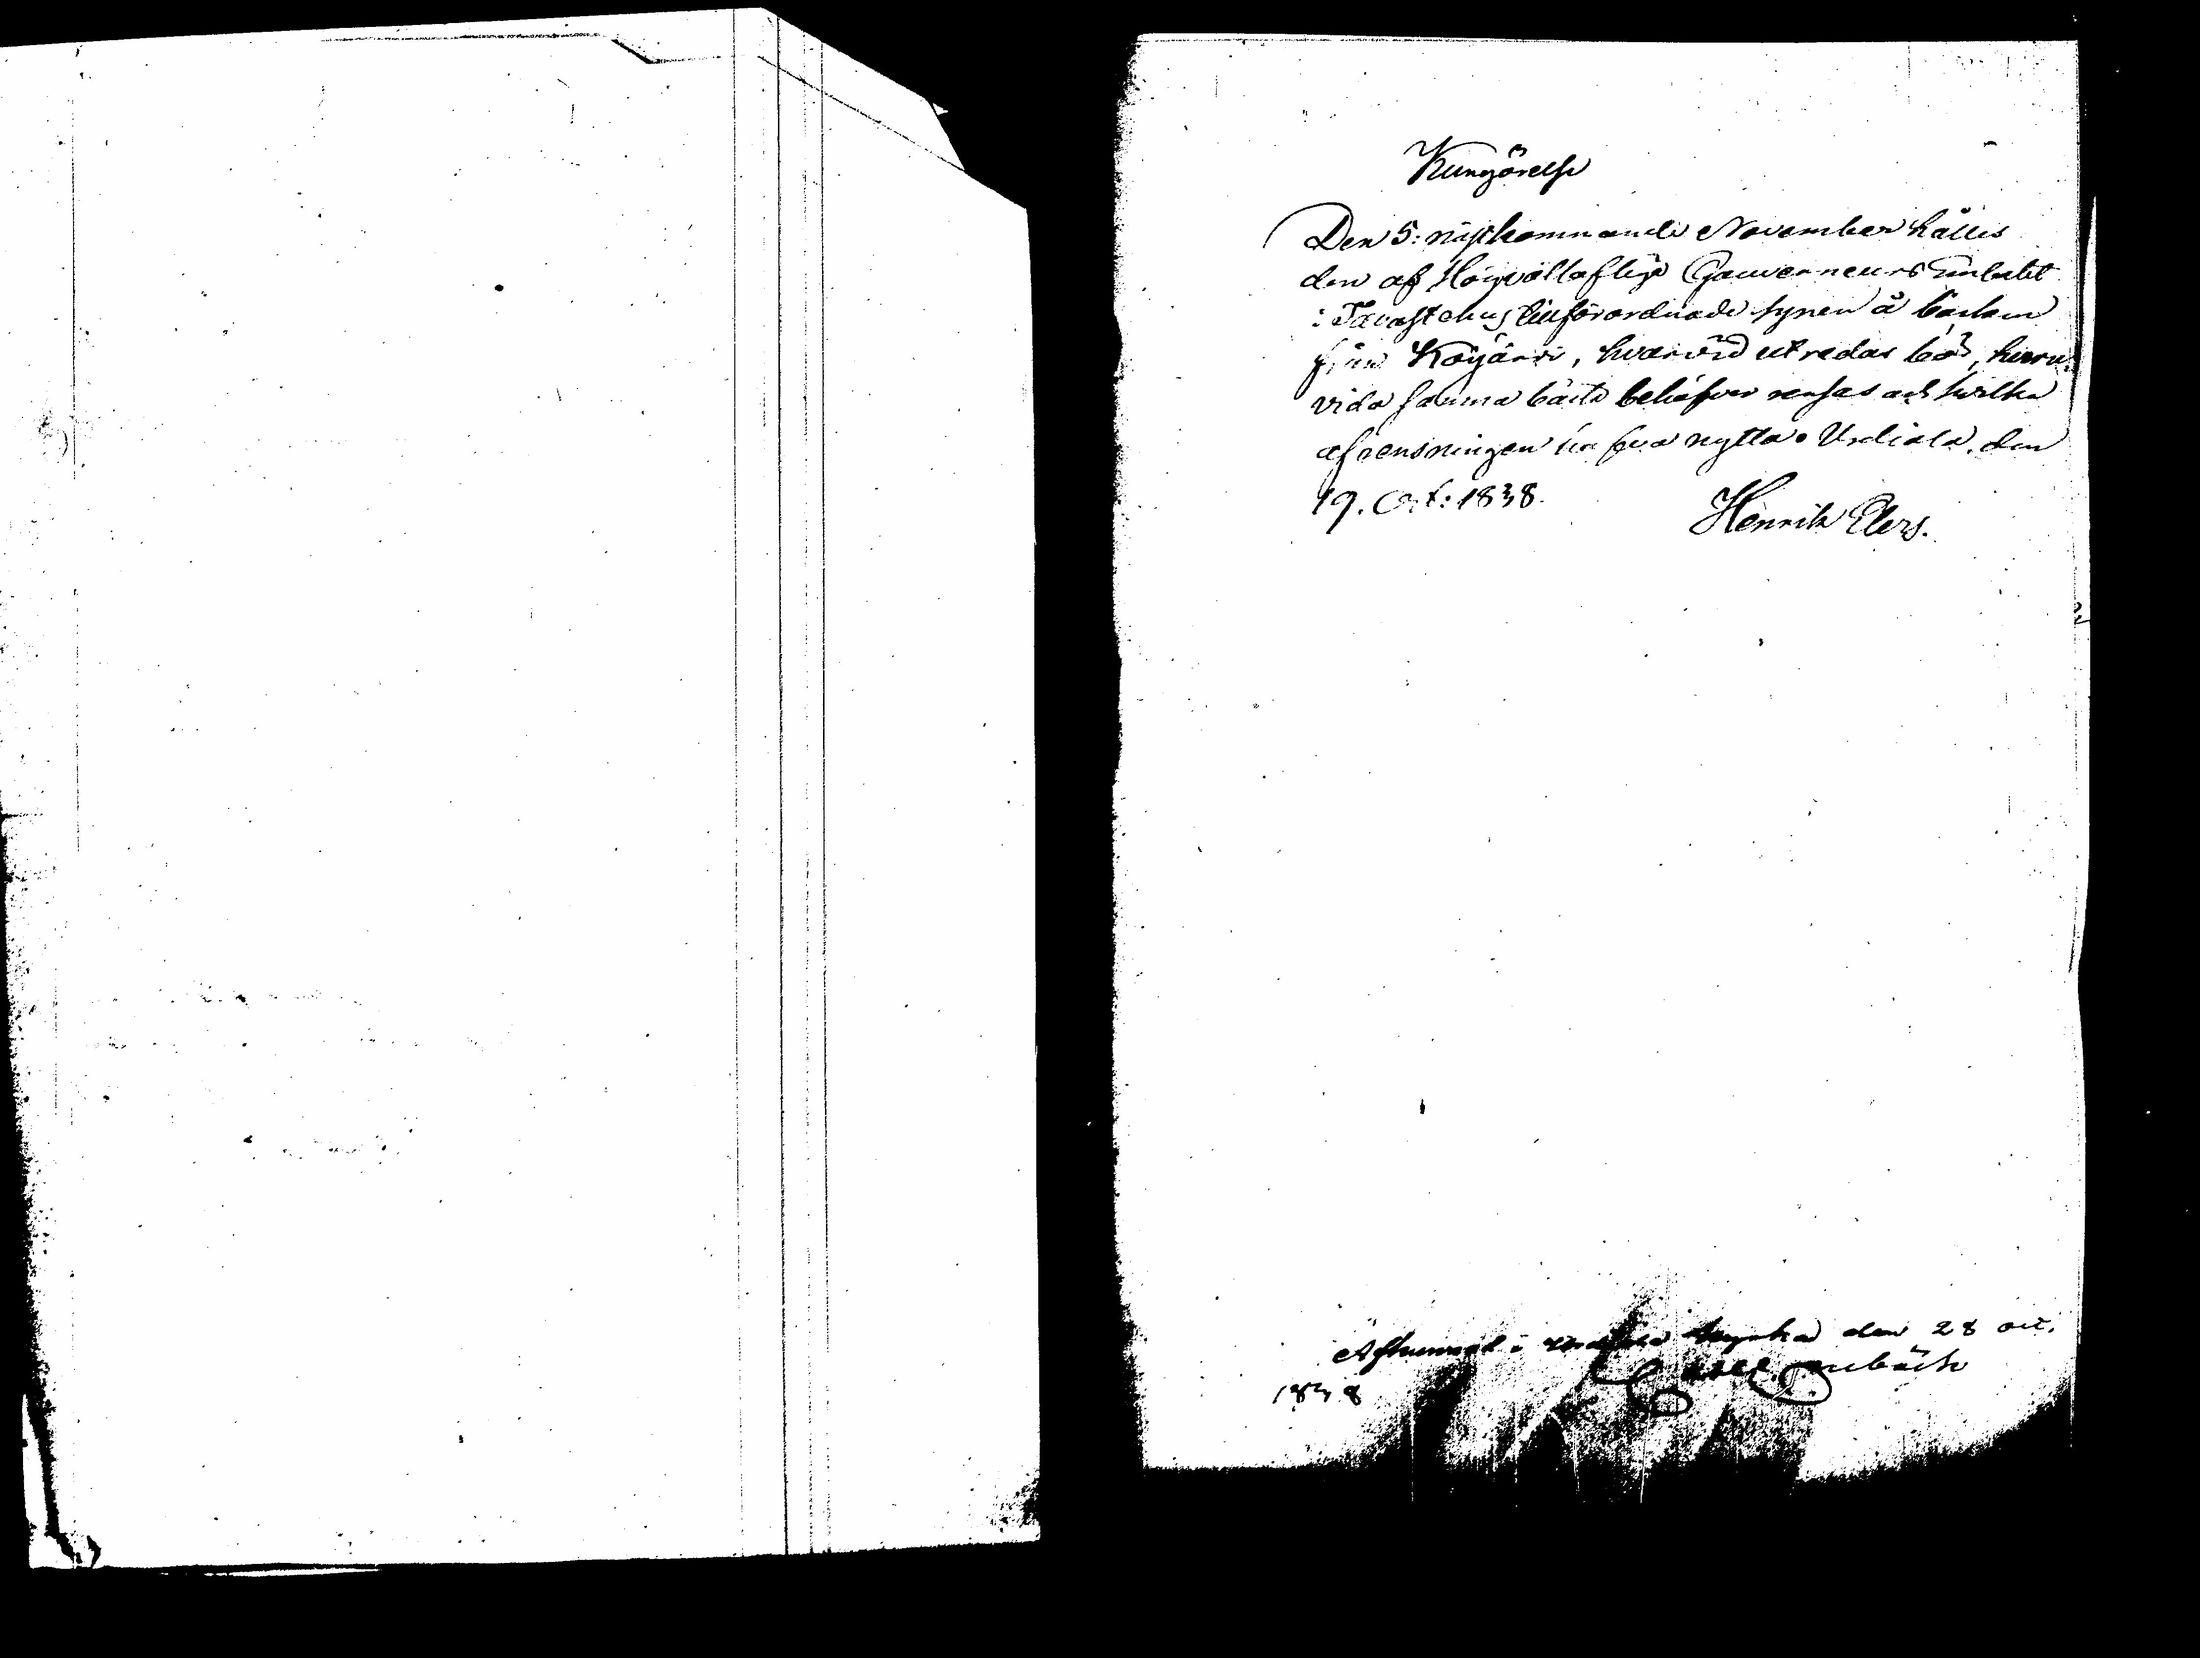 Kungörelse
Den 5: nästkommande November hålles
den af Högvällofliga Gouverneurs Embetet
i Tavastehus Län förordnade synen å bäcken
från Kojjärvi, hvarvid utredas bör, huru
vida samma bäck behöfver rensas och hvilka
af rensningen nytta. Urdiala den
19. Oct: 1838.
Henrik Elers.
Afkunnad i Urdiala kyrka den 28 oct.
1838